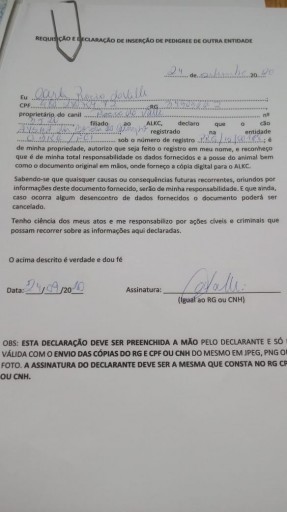 REQUISIÇÃO E DECLARAÇÃO DE INSERÇÃO DE PEDIGREE DE OUTRA ENTIDADE
24 de setembro 20
Eu
CPF RG
proprietário do canil nº
filiado ao ALKC, declaro que o cão
registrado na entidade
sob o número de registro é
de minha propriedade, autorizo que seja feito o registro em meu nome, e reconheço
que é de minha total responsabilidade os dados fornecidos e a posse do animal bem
como o documento original em mãos, onde forneço a cópia digital para o ALKC.
Sabendo-se que quaisquer causas ou consequências futuras recorrentes, oriundos por
informações deste documento fornecido, serão de minha responsabilidade. E que ainda,
caso ocorra algum desencontro de dados fornecidos o documento poderá ser
cancelado.
Tenho ciência dos meus atos e me responsabilizo por ações cíveis e criminais que
possam recorrer sobre as informações aqui declaradas.
O acima descrito é verdade e dou fé
Data: 24/09/2010 Assinatura: Valle
(Igual ao RG ou CNH)
OBS: ESTA DECLARAÇÃO DEVE SER PREENCHIDA A MÃO PELO DECLARANTE E SÓ
VÁLIDA COM O ENVIO DAS CÓPIAS DO RG E CPF OU CNH DO MESMO EM JPEG, PNG OU
FOTO. A ASSINATURA DO DECLARANTE DEVE SER A MESMA QUE CONSTA NO RG CP
OU CNH.